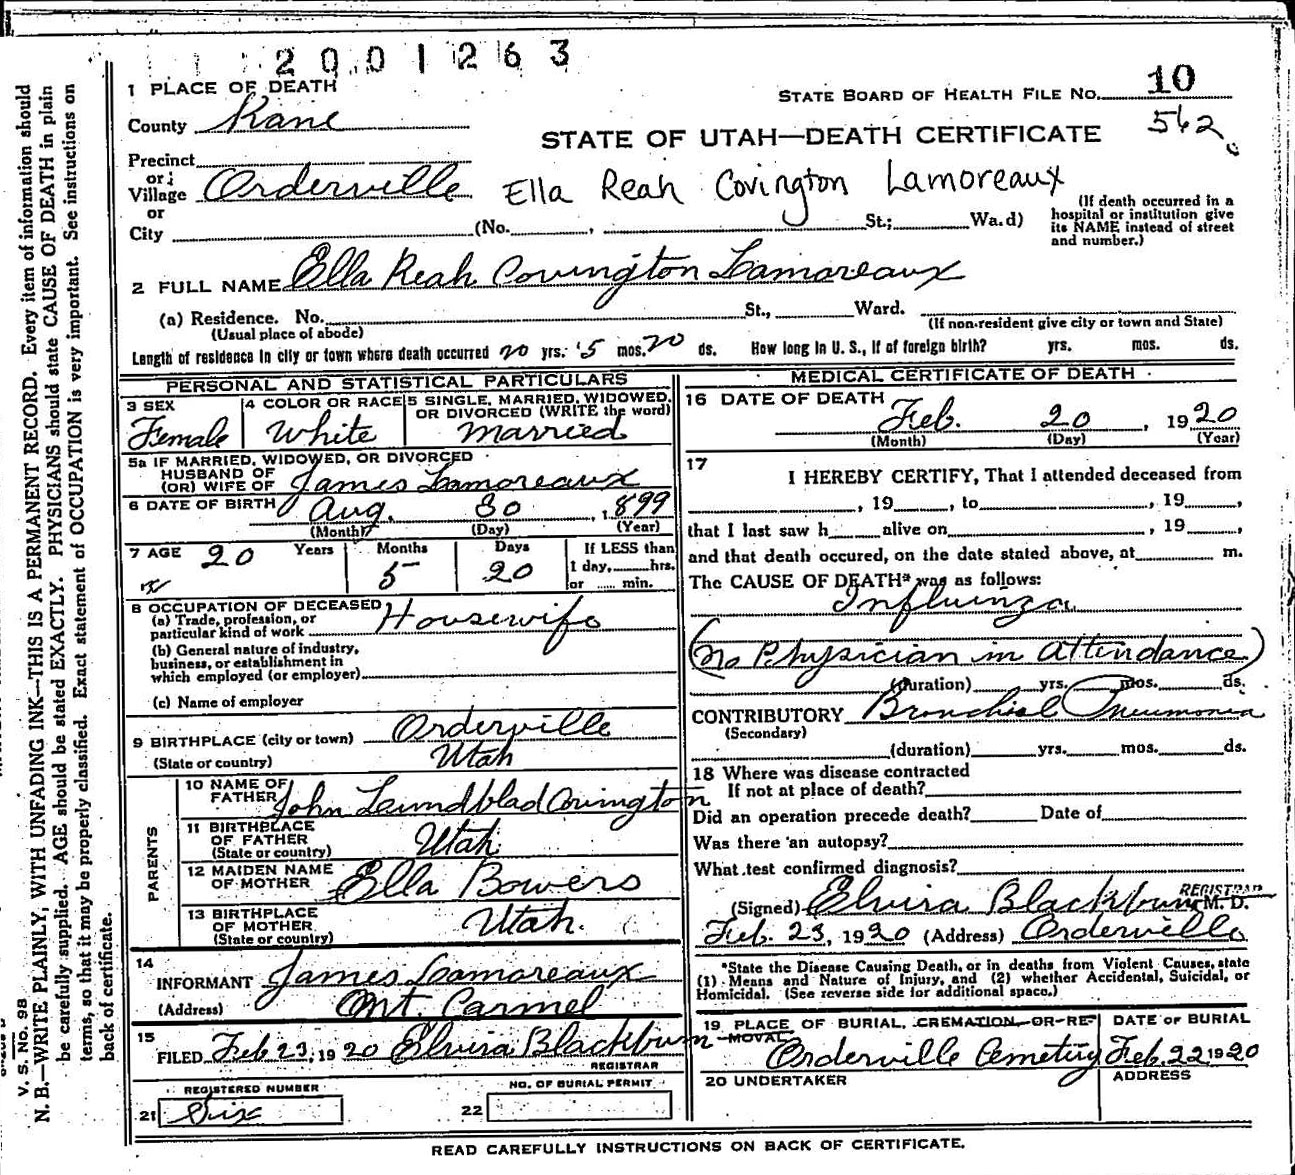 2001263
1 PLACE OF DEATH
STATE BOARD OF HEALTH FILE No. 10
County Kane
562
STATE OF UTAH—DEATH CERTIFICATE
Precinct
or
Village Orderville
Ella Reah Covington Lamoreaux
or
City (No. , St.; Wa.d)
(If death occurred in a
hospital or institution give
its NAME instead of street
and number.)
2 FULL NAME Ella Reah Covington Lamoreaux
(a) Residence. No. St., Ward.
(Usual place of abode)
(If non-resident give city or town and State)
Length of residence in city or town where death occurred 20 yrs. 5 mos. 20 ds. How long in U. S., if of foreign birth? yrs. mos. ds.
PERSONAL AND STATISTICAL PARTICULARS
3 SEX
Female
4 COLOR OR RACE
White
5 SINGLE, MARRIED, WIDOWED,
OR DIVORCED (WRITE the word)
Married
5a IF MARRIED, WIDOWED, OR DIVORCED
HUSBAND OF
(OR) WIFE OF James Lamoreaux
6 DATE OF BIRTH Aug. 30, 1899
(Month) (Day) (Year)
7 AGE 20 Years 5 Months 20 Days
If LESS than
1 day, hrs.
or min.
8 OCCUPATION OF DECEASED
(a) Trade, profession, or
particular kind of work Housewife
(b) General nature of industry,
business, or establishment in
which employed (or employer)
(c) Name of employer
9 BIRTHPLACE (city or town) Orderville
(State or country) Utah
PARENTS
10 NAME OF
FATHER John Lundblad Covington
11 BIRTHPLACE
OF FATHER
(State or country) Utah
12 MAIDEN NAME
OF MOTHER Ella Bowers
13 BIRTHPLACE
OF MOTHER
(State or country) Utah.
14
INFORMANT James Lamoreaux
(Address) Mt. Carmel
15
FILED Feb 23, 1920 Elvira Blackburn
REGISTRAR
REGISTERED NUMBER
21 Six
NO. OF BURIAL PERMIT
22
MEDICAL CERTIFICATE OF DEATH
16 DATE OF DEATH
Feb. 20, 1920
(Month) (Day) (Year)
17
I HEREBY CERTIFY, That I attended deceased from
, 19 , to , 19 ,
that I last saw h alive on , 19 ,
and that death occured, on the date stated above, at m.
The CAUSE OF DEATH* was as follows:
Influinza
(No Physician in attendance)
(duration) yrs. mos. ds.
CONTRIBUTORY Bronchial Pneumonia
(Secondary)
(duration) yrs. mos. ds.
18 Where was disease contracted
If not at place of death?
Did an operation precede death? Date of
Was there an autopsy?
What test confirmed diagnosis?
REGISTRAR
(Signed) Elvira Blackburn M. D.
Feb. 23, 1920 (Address) Orderville
*State the Disease Causing Death, or in deaths from Violent Causes, state
(1) Means and Nature of Injury, and (2) whether Accidental, Suicidal, or
Homicidal. (See reverse side for additional space.)
19 PLACE OF BURIAL, CREMATION, OR RE-
MOVAL
Orderville Cemetery
DATE OF BURIAL
Feb. 22 1920
20 UNDERTAKER
ADDRESS
READ CAREFULLY INSTRUCTIONS ON BACK OF CERTIFICATE.
V. S.—No. 98
N. B.—WRITE PLAINLY, WITH UNFADING INK—THIS IS A PERMANENT RECORD. Every item of information should
be carefully supplied. AGE should be stated EXACTLY. PHYSICIANS should state CAUSE OF DEATH in plain
terms, so that it may be properly classified. Exact statement of OCCUPATION is very important. See instructions on
back of certificate.